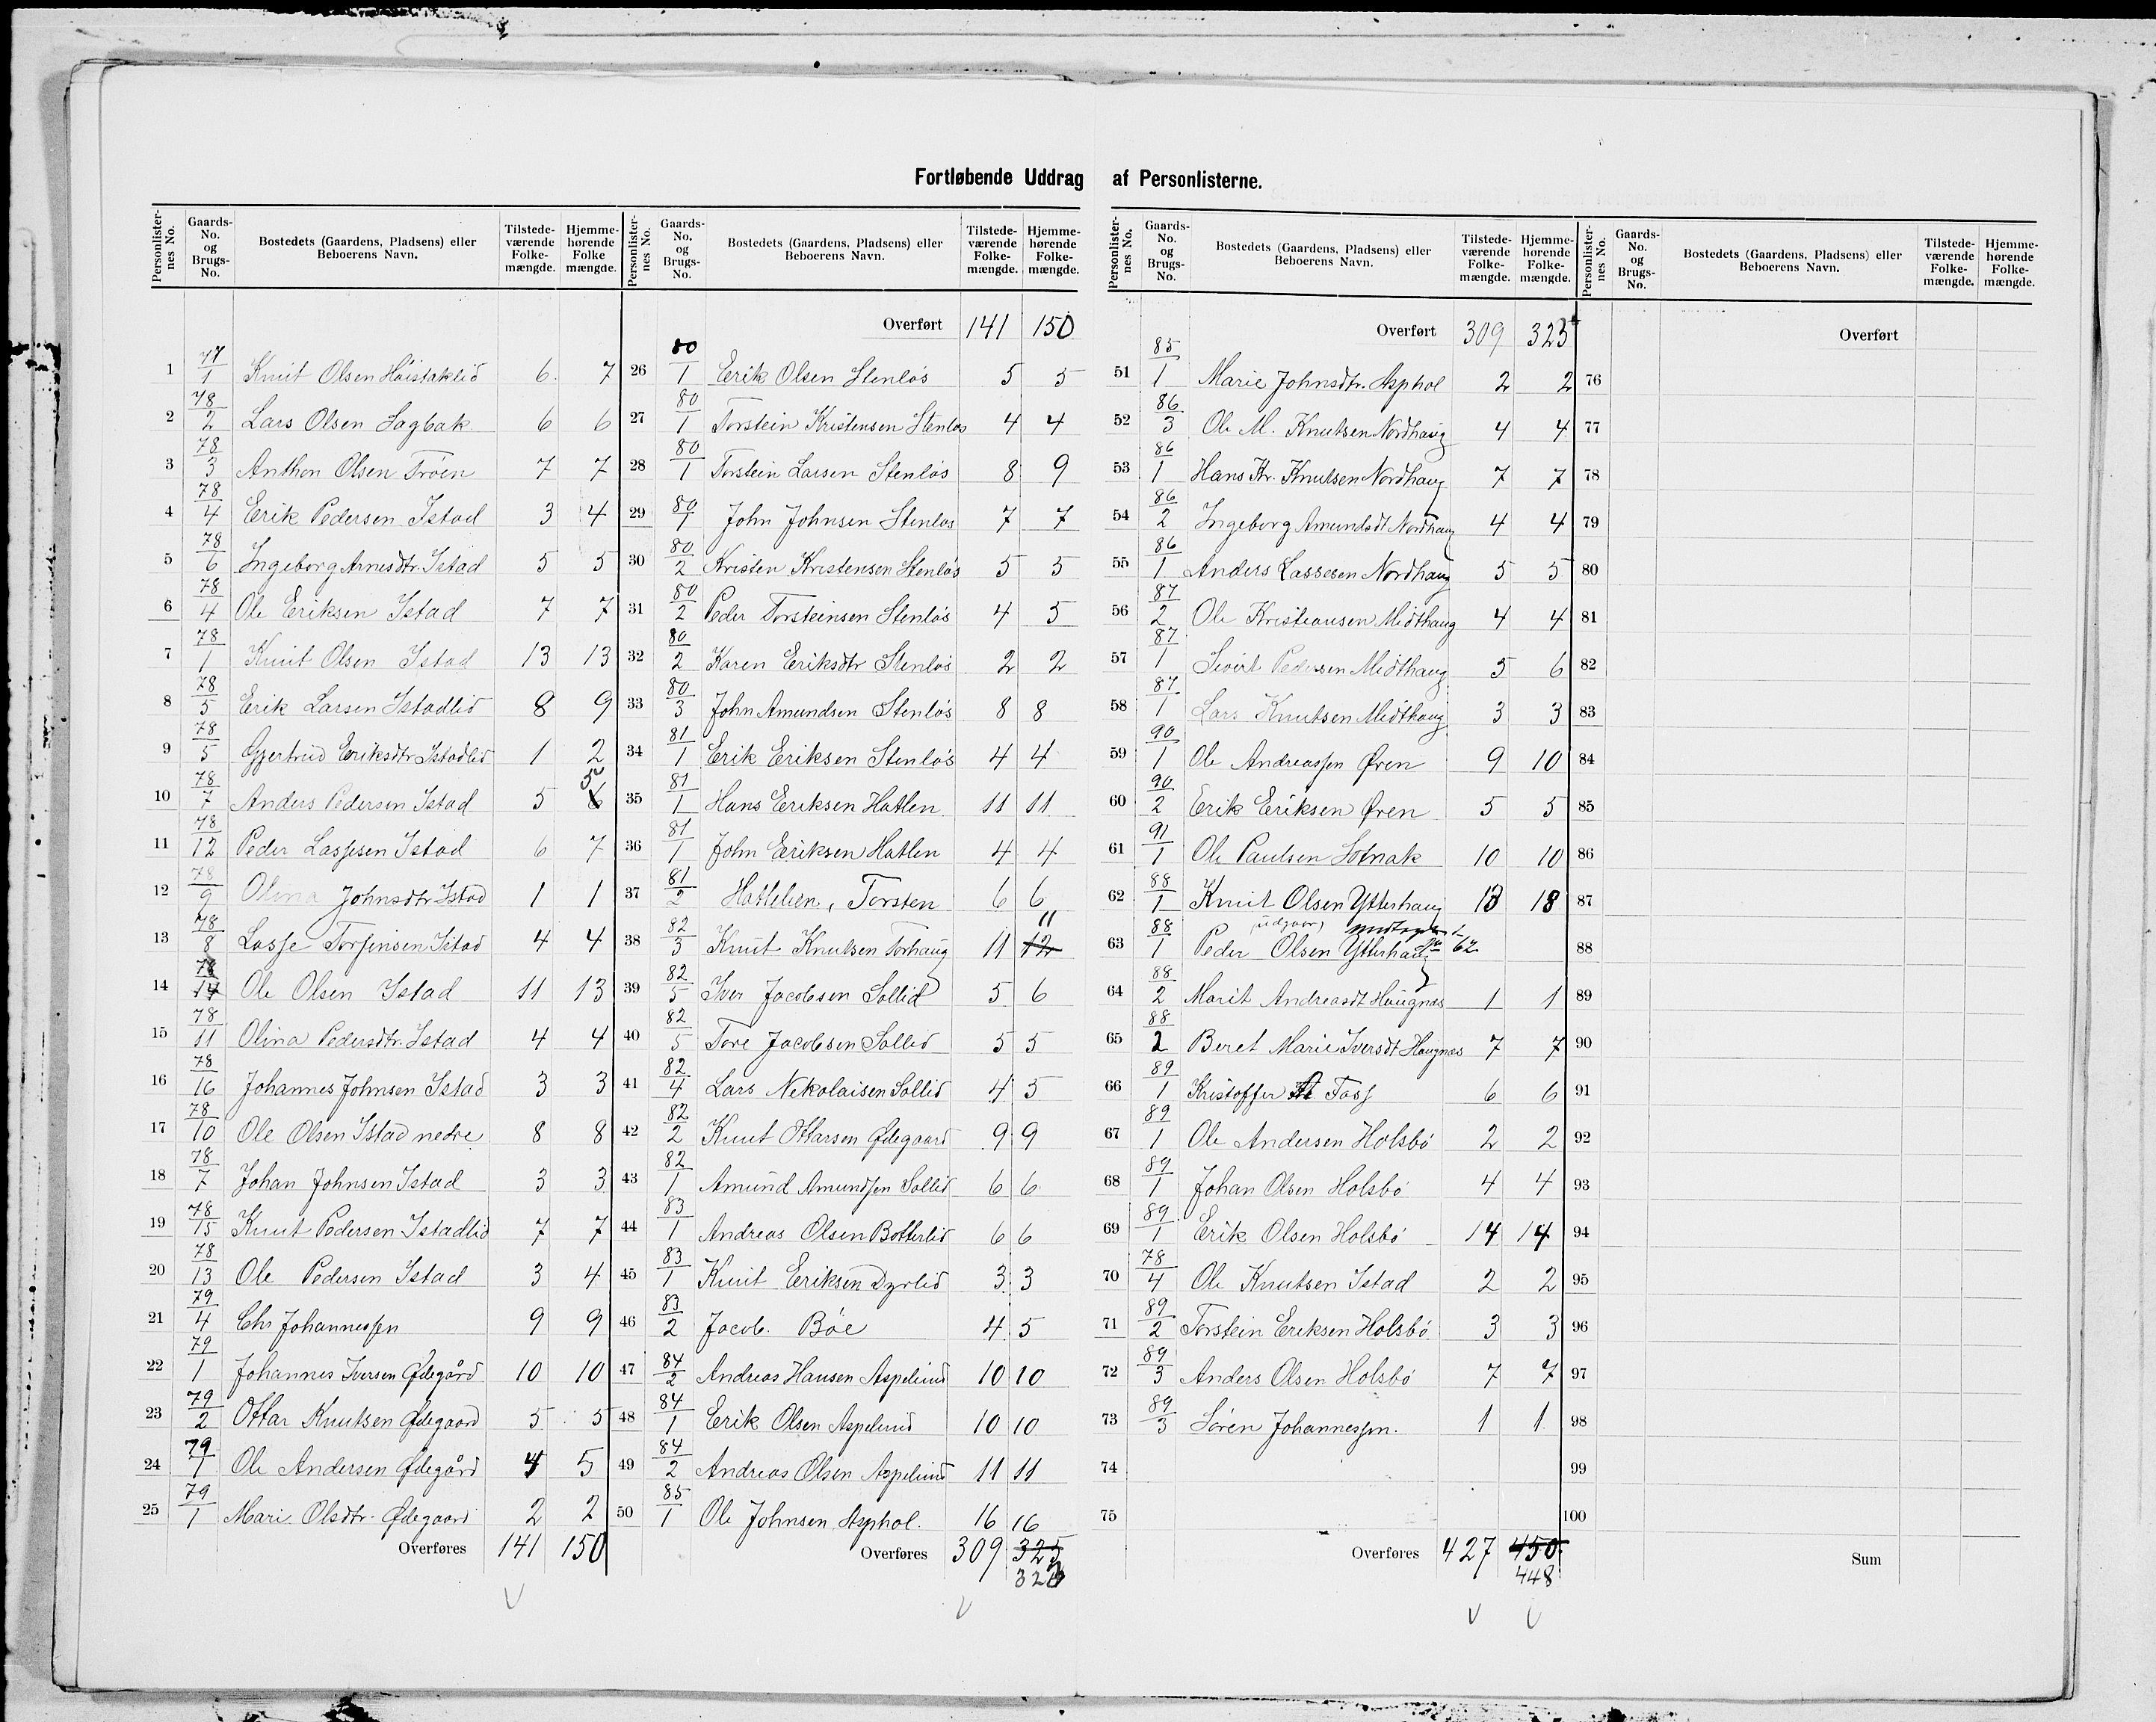 Fortløbende Uddrag af Personlisterne.
Personlister-nes No. Gaards-No. og Brugs-No. Bostedets (Gaardens, Pladsens) eller Beboerens Navn. Tilstede-værende Folke-mængde. Hjemme-hørende Folke mængde.
1 77/1 Knut Olsen Høistaklid 6 7
2 78/2 Lars Olsen Sagbak 6 6
3 78/3 Anthon Olsen Trøen 7 7
4 78/4 Erik Pedersen Istad 3 4
5 78/6 Ingeborg Arnesdtr. Istad 5 5
6 78/4 Ole Eriksen Istad 7 7
7 78/1 Knut Olsen Istad 13 13
8 78/5 Erik Larsen Istadlid 8 9
9 78/5 Gjertrud Eriksdtr Istadlid 1 2
10 78/7 Anders Pedersen Istad 5 6 5
11 78/12 Peder Lassesen Istad 6 7
12 78/9 Olina Johnsdtr Istad 1 1
13 78/8 Lasse Torfinsen Istad 4 4
14 78/14 Ole Olsen Istad 11 13
15 78/11 Olina Pedersdtr. Istad 4 4
16 78/16 Johannes Johnsen Istad 3 3
17 78/10 Ole Olsen Istad nedre 8 8
18 78/7 Johan Johnsen Istad 3 3
19 78/15 Knut Pedersen Istadlid 7 7
20 78/13 Ole Pedersen Istad 3 4
21 79/4 Chr Johannessen 9 9
22 79/1 Johannes Iversen Ødegård 10 10
23 79/2 Ottar Knutsen Ødegaard 5 5
24 79/1 Ole Andersen Ødegård 4 5
25 79/1 Mari Olsdtr. Ødegaard 2 2
Overføres 141 150
Personlister-nes No. Gaards-No. og Brugs-No. Bostedets (Gaardens, Pladsens) eller Beboerens Navn. Tilstede-værende Folke-mængde. Hjemme-hørende Folke-mængde.
Overført 141 150
26 80/1 Erik Olsen Stenløs 5 5
27 80/1 Torstein Kristensen Stenløs 4 4
28 80/1 Torstein Larsen Stenløs 8 9
29 80/1 John Johnsen Stenløs 7 7
30 80/2 Kristen Kristensen Stenløs 5 5
31 80/2 Peder Torsteinsen Stenløs 4 5
32 80/2 Karen Eriksdtr Stenløs 2 2
33 80/3 John Amundsen Stenløs 8 8
34 81/1 Erik Eriksen Stenløs 4 4
35 81/1 Hans Eriksen Hatlen 11 11
36 81/1 John Eriksen Hatlen 4 4
37 81/2 Hatlelien, Torsten 6 6
38 82/3 Knut Knutsen Torhaug 11 12 11
39 82/5 Iver Jacobsen Sollid 5 6
40 82/5 Tore Jacobsen Sollid 5 5
41 82/4 Lars Nekolaisen Sollid 4 5
42 82/2 Knut Ottarsen Ødegaard 9 9
43 82/1 Amund Amundsen Sollid 6 6
44 83/1 Andreas Olsen Botterlid 6 6
45 83/1 Knut Eriksen Dyrlid 3 3
46 83/2 Jacob. Bøe 4 5
47 84/2 Andreas Hansen Aspelund 10 10
48 84/1 Erik Olsen Aspelund 10 10
49 84/2 Andreas Olsen Aspelund 11 11
50 85/1 Ole Johnsen Asphol. 16 16
Overføres 309 325
323
Personlister-nes No. Gaards-No. og Brugs-No. Bostedets (Gaardens, Pladsens) eller Beboerens Navn. Tilstede-værende Folke-mængde. Hjemme-hørende Folke-mængde.
Overført 309 325
51 85/1 Marie Johnsdtr. Asphol 2 2
52 86/3 Ole M. Knutsen Nordhaug 4 4
53 86/1 Hans Kr. Knutsen Nordhaug 7 7
54 86/2 Ingeborg Amundsdt Nordhaug 4 4
55 86/1 Anders Lassesen Nordhaug 5 5
56 87/2 Ole Kristiansen Midthaug 4 4
57 87/1 Sivert Pedersen Midthaug 5 6
58 87/1 Lars Knutsen Midthaug 3 3
59 90/1 Ole Andreassen Øren 9 10
60 90/2 Erik Eriksen Øren 5 5
61 91/1 Ole Paulsen Sotnak 10 10
62 88/1 Knut Olsen Ytterhaug 18 18
udgaar,
63 88/1 Peder Olsen Ytterhaug 62
64 88/2 Marit Andreasdt Haugnæs 1 1
65 88/2 Beret Marie Iversdt Haugnæs 7 7
66 89/1 Kristoffer A Foss 6 6
67 89/1 Ole Andersen Holsbø 2 2
68 89/1 Johan Olsen Holsbø 4 4
69 89/1 Erik Olsen Holsbø 14 14
70 78/4 Ole Knutsen Istad 2 2
71 89/2 Torstein Eriksen Holsbø 3 3
72 89/3 Anders Olsen Holsbø 7 7
73 89/3 Søren Johannessen. 1 1
74
75
Overføres 427 450
448
Personlister-nes No. Gaards-No. og Brugs-No. Bostedets (Gaardens, Pladsens) eller Beboerens Navn. Tilstede-værende Folke-mængde. Hjemme-hørende Folke-mængde.
Overført
76
77
78
79
80
81
82
83
84
85
86
87
88
89
90
91
92
93
94
95
96
97
98
99
100
Sum